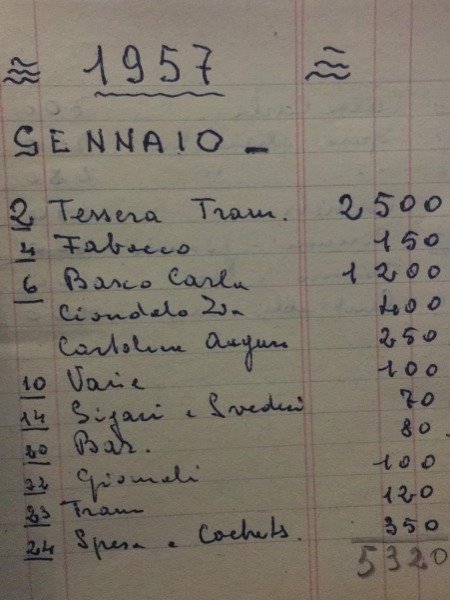 1957
GENNAIO -
2 Tessera Tram. 2500
4 Tabacco 150
6 Carla 1200
Ciondolo 400
Cartoline Auguri 250
10 Varie 100
14 Sigari e Svedesi 70
20 Bar. 80
22 Giornali 100
23 Tram 120
24 Spesa e Cachets. 350
5320